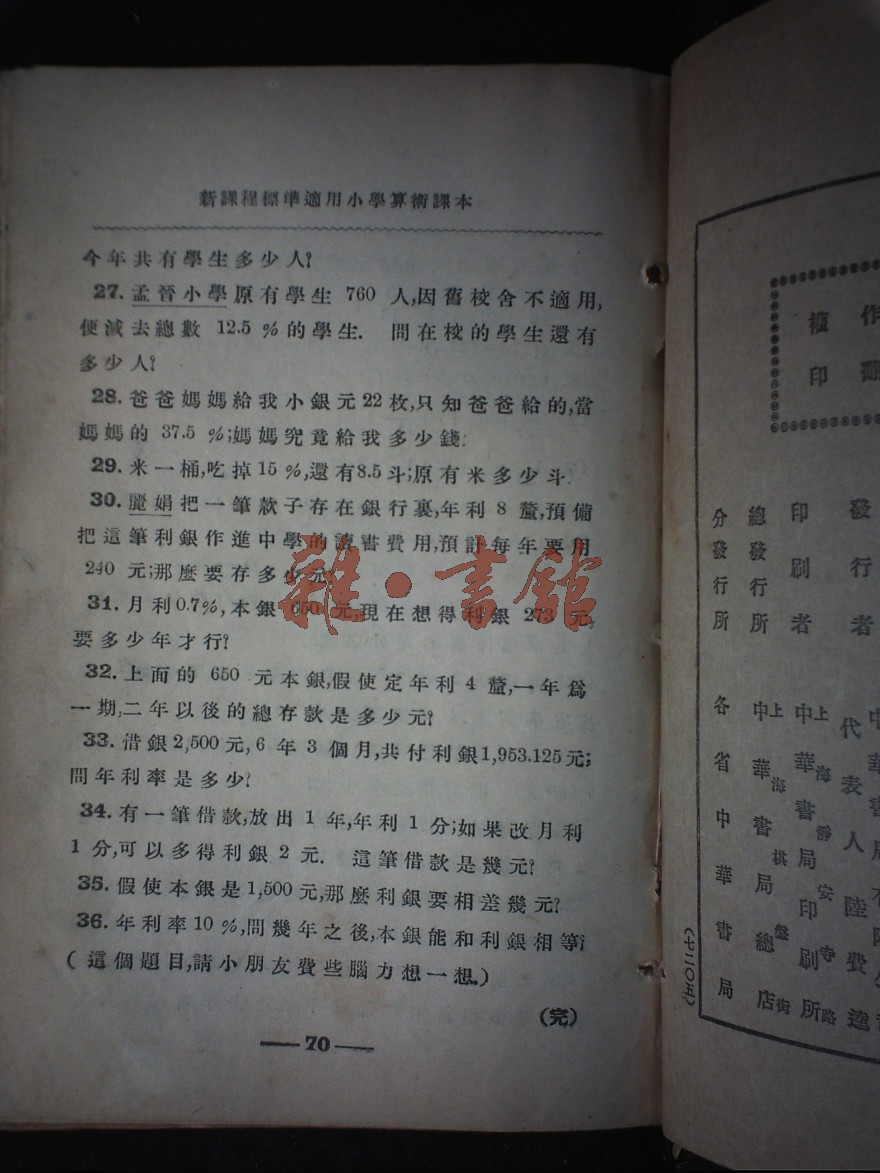 新課程標準適用小學算術課本
今年共有學生多少人?
27. 孟晉小學原有學生 760 人,因舊校舍不適用,
便減去總數 12.5 %的學生. 問在校的學生還有
多少人?
28. 爸爸媽媽給我小銀元22枚,只知爸爸給的,當
媽媽的 37.5 %;媽媽究竟給我多少錢.
29. 米一桶,吃掉15%,還有8.5斗;原有米多少斗.
30. 麗娟把一筆款子存在銀行裏,年利 8 釐,預備
把這筆利銀作進中學的讀書費用,預計每年要用
240 元;那麼要存多少元
31. 月利0.7%,本銀 650 元,現在想得利銀 273 元,
要多少年才行?
32. 上面的 650 元本銀,假使定年利 4 釐,一年爲
一期,二年以後的總存款是多少元?
33. 借銀2,500元,6 年 3 個月,共付利銀1,953.125元;
問年利率是多少?
34. 有一筆借款,放出 1 年,年利 1 分;如果改月利
1 分,可以多得利銀 2 元. 這筆借款是幾元?
35. 假使本銀是1,500元,那麼利銀要相差幾元?
36. 年利率10 %,問幾年之後,本銀能和利銀相等?
( 這個題目,請小朋友費些腦力想一想.)
(完)
70
雜·書館
作
權
印
發行者
印刷者
總發行所
分發行所
代表人陸費逵
上海靜安寺路
中華書局印刷所
上海棋盤街
中華書局總店
各省中華書局
(十二〇五)